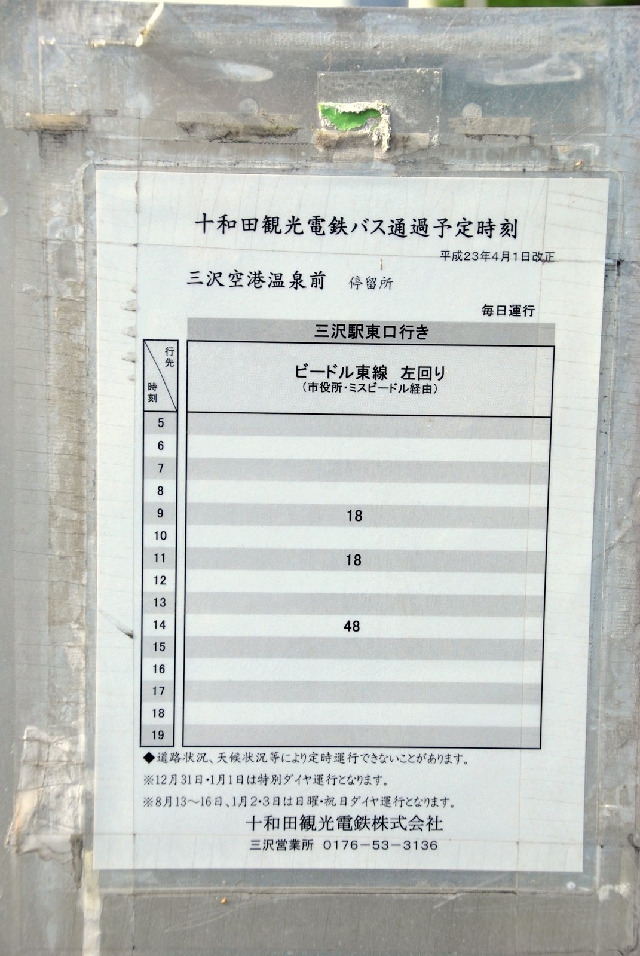 十和田観光電鉄バス通過予定時刻
平成23年4月1日改正
三沢空港温泉前 停留所
毎日運行
三沢駅東口行き
行先
時刻
ビードル東線 左回り
(市役所・ミスビードル経由)
5
6
7
8
9 18
10
11 18
12
13
14 48
15
16
17
18
19
◆道路状況、天候状況等により定時運行できないことがあります。
※12月31日・1月1日は特別ダイヤ運行となります。
※8月13～16日、1月2・3日は日曜・祝日ダイヤ運行となります。
十和田観光電鉄株式会社
三沢営業所 0176-53-3136